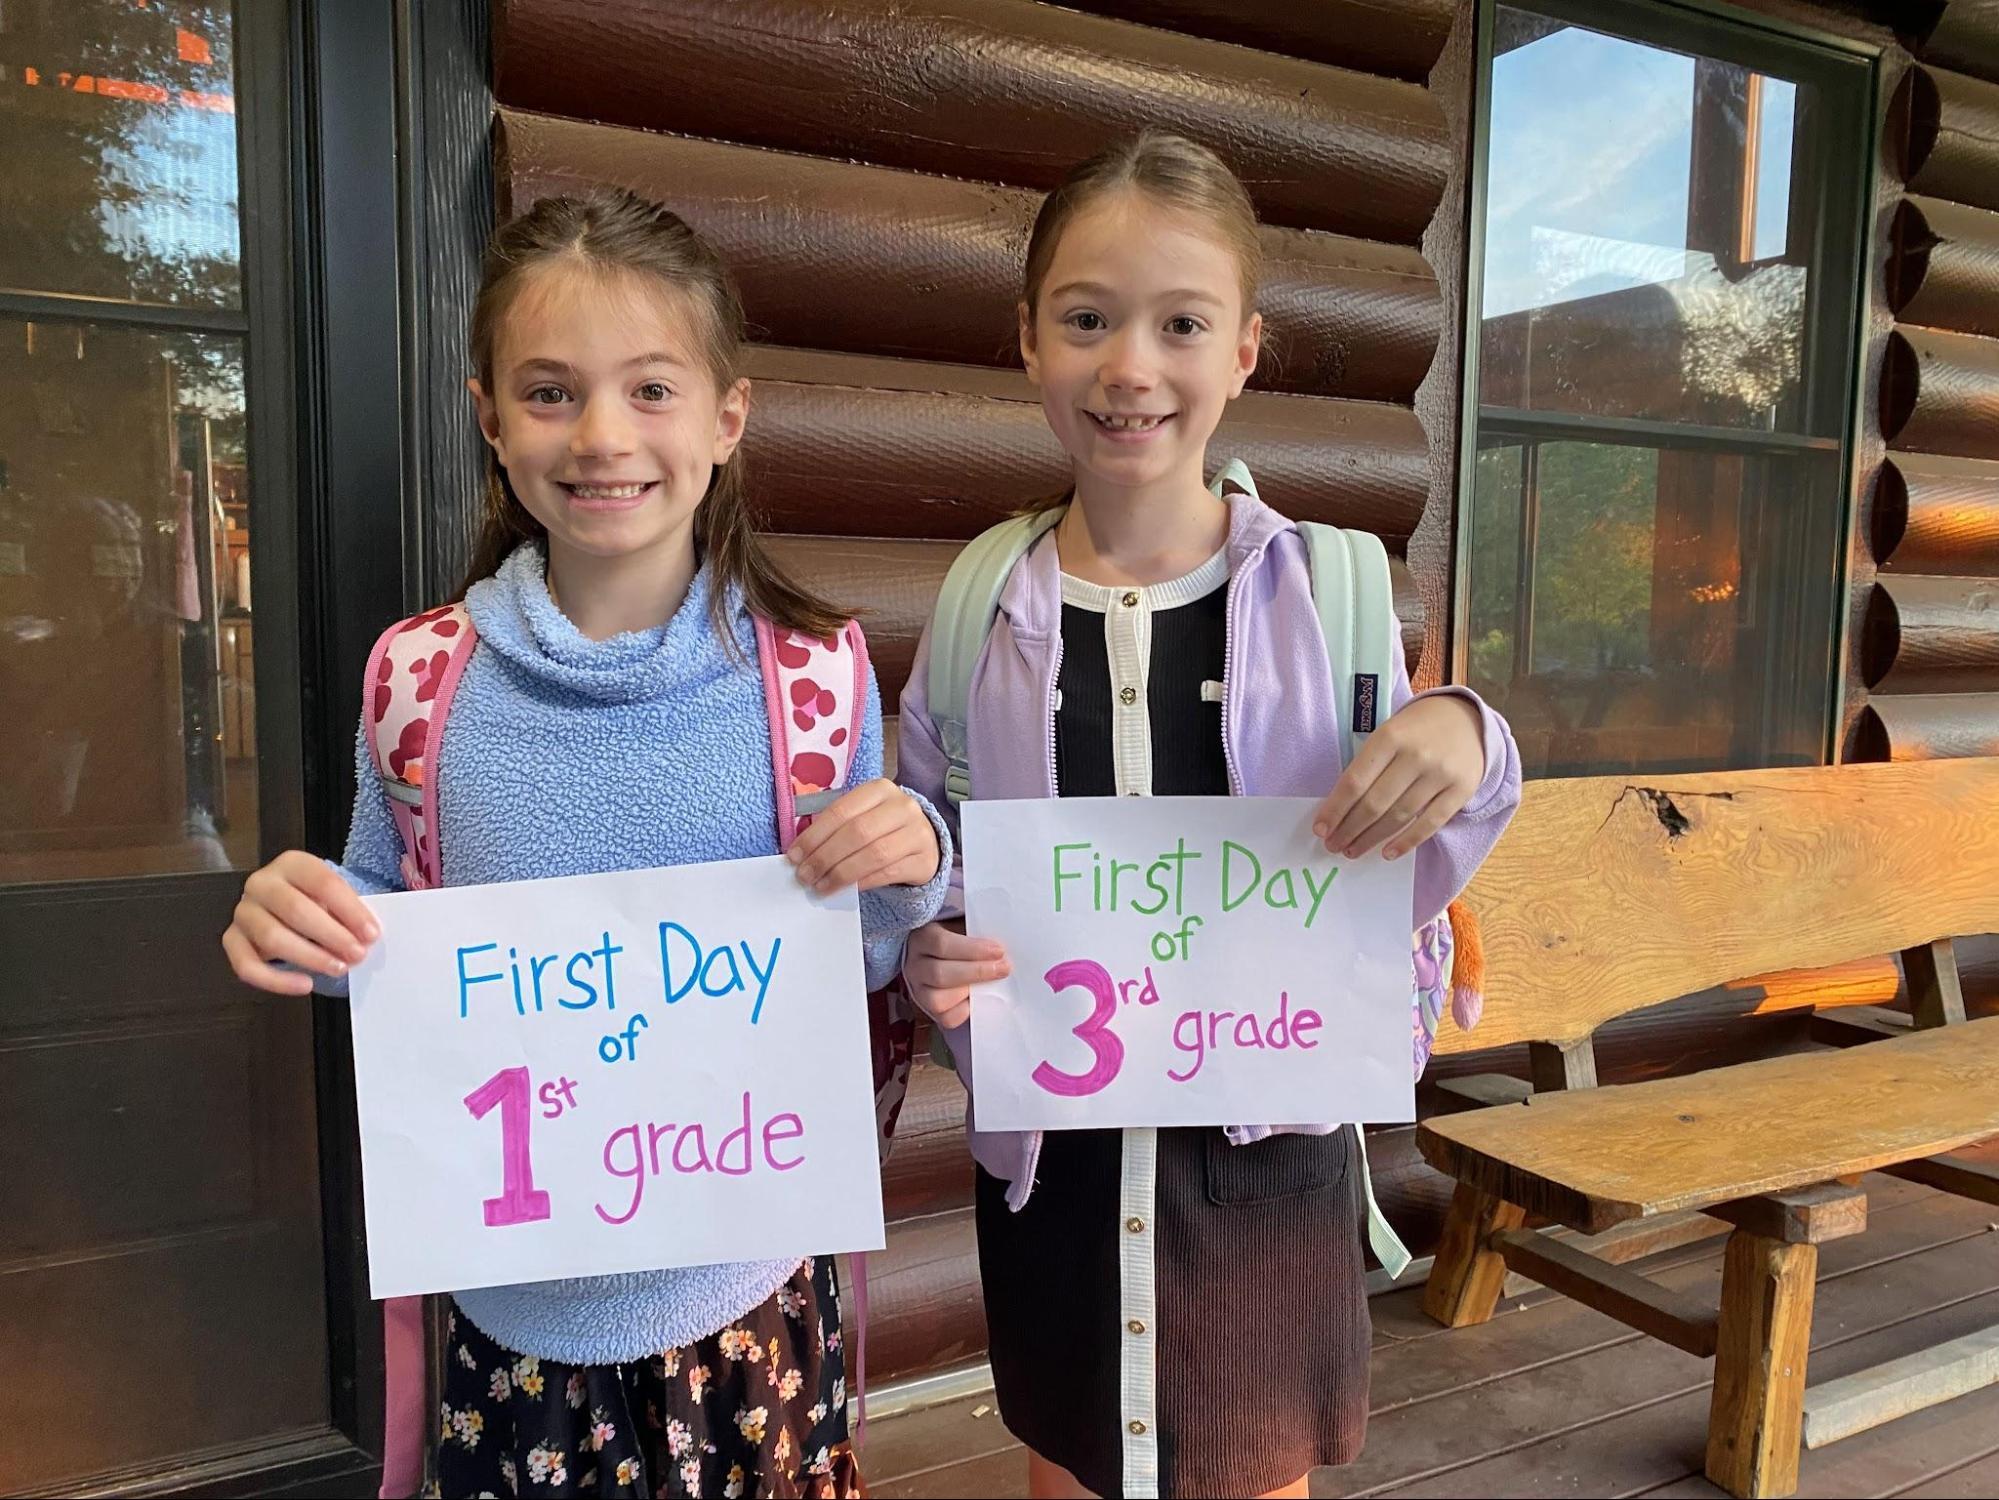 First Day
of
1st grade
First Day
of
3rd grade
JANSPORT